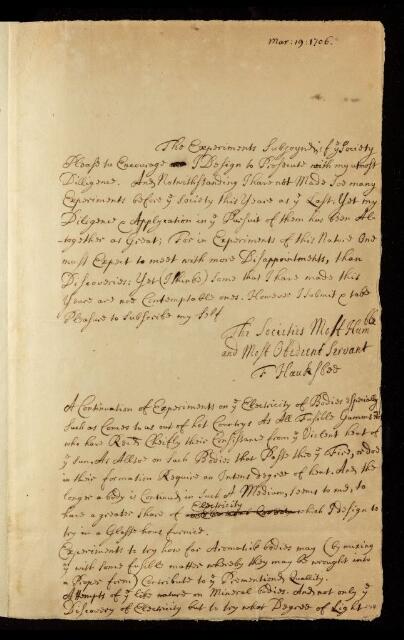 Mar: 19: 1706.
The Experiments Subjoynd; if yͤ Society
Please to Encourage I Design to Prosecute with my utmost
Dilligence. And Notwithstanding I have not Made Soe many
Experiments before yͤ Society this Yeare as yͤ Last: Yet my
Diligence & Application in yͤ Pursuit of them has been Al-
-together as Great; For in Experiments of this Nature One
must Expect to meet with more Disappointments, than
Discoveries: Yet (I think) Some that I have made this
Yeare are not Contemptable ones. However I Submit & take
Pleasure to Subscribe my Self
The Societies Most Humble
and Most Obedient Servant
F Hauksbee
A Continuation of Experiments on yͤ Electricity of Bodies Especially
Such as Comes to us out of hot Countrys As All Fusible Gumms &c
who have Recd. Chiefly their Consistance from yͤ Violent heat of
yͤ Sun. As Allsoe on Such Bodies that Passe thro yͤ Fire, order
in their formation Require an Intens degree of heat. And the
longer a body is Continued in Such A Medium, Seems to me, to
have a greater Share of Electricity which I Design to
try in a Glasse hous Furnice.
Experiments to try how far Aromatik bodies may (by mixing
yͤ with some Fusible matter whereby they may be wrought into
a Proper form) Contribute to yͤ Prementioned Quality.
Attempts of yͤ like nature on Mineral bodies. And not only yͤ
Discovery of Electricity but to try what Degree of Light